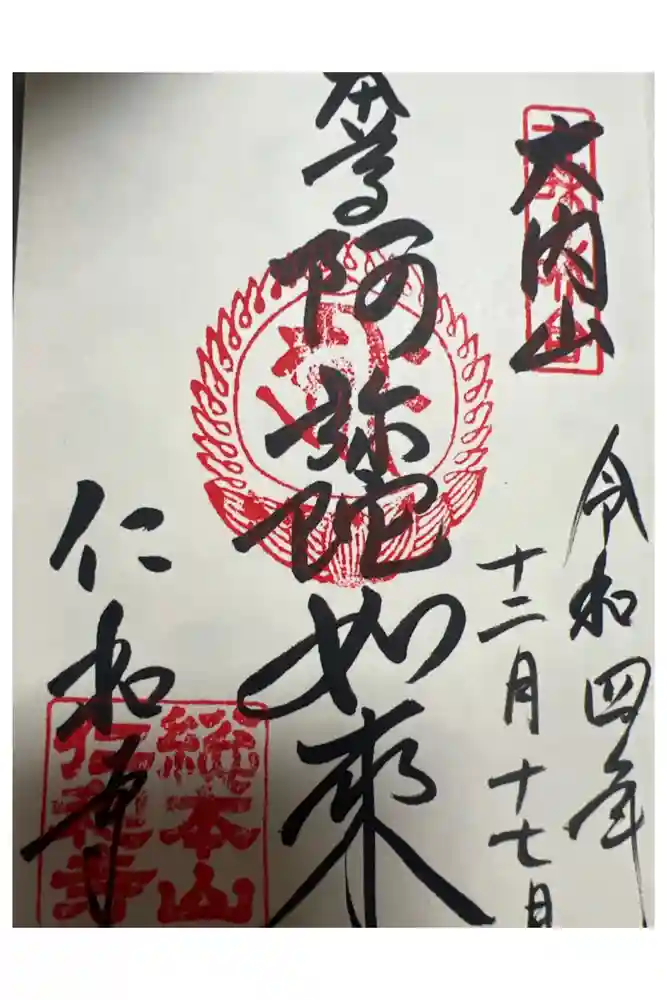 大内山
令和四年
十二月十七日
本尊
阿弥陀如来
仁和寺
総本山
仁和寺